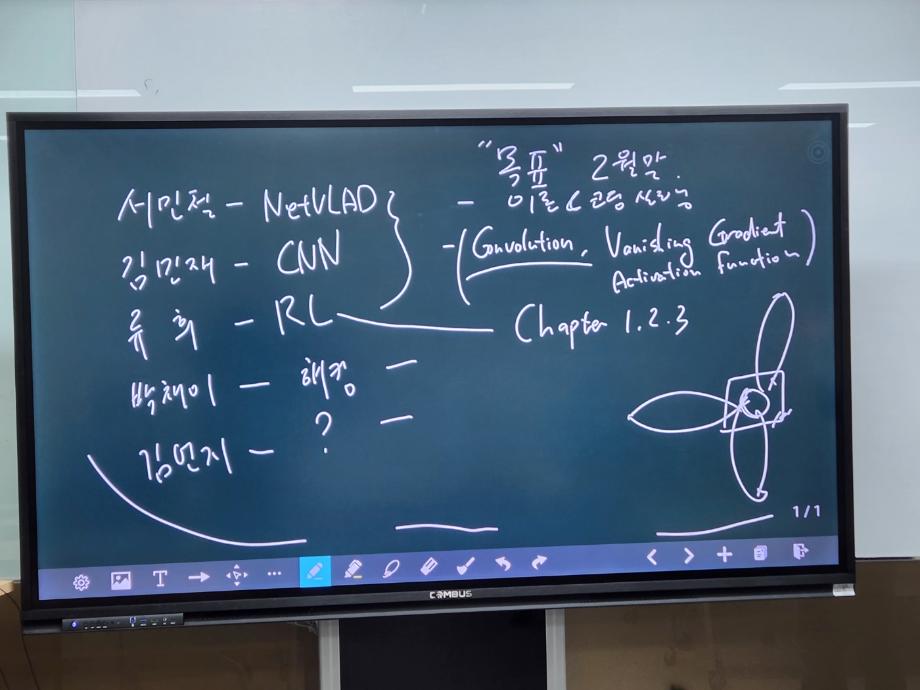 "목표" 2월말.
서민철 - NetVLAD
- 이론 < 코딩 실력
김민재 - CNN
- (Convolution, Vanishing Gradient
Activation function)
류희 - RL
Chapter 1.2.3
박채이 - 해킹 -
김민지 - ? -
1/1
T
COMBUS